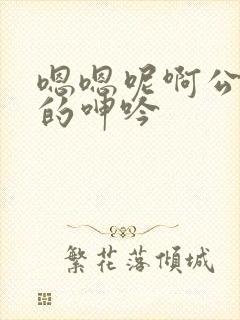 嗯嗯呢啊公
的呻吟
繁花落倾城